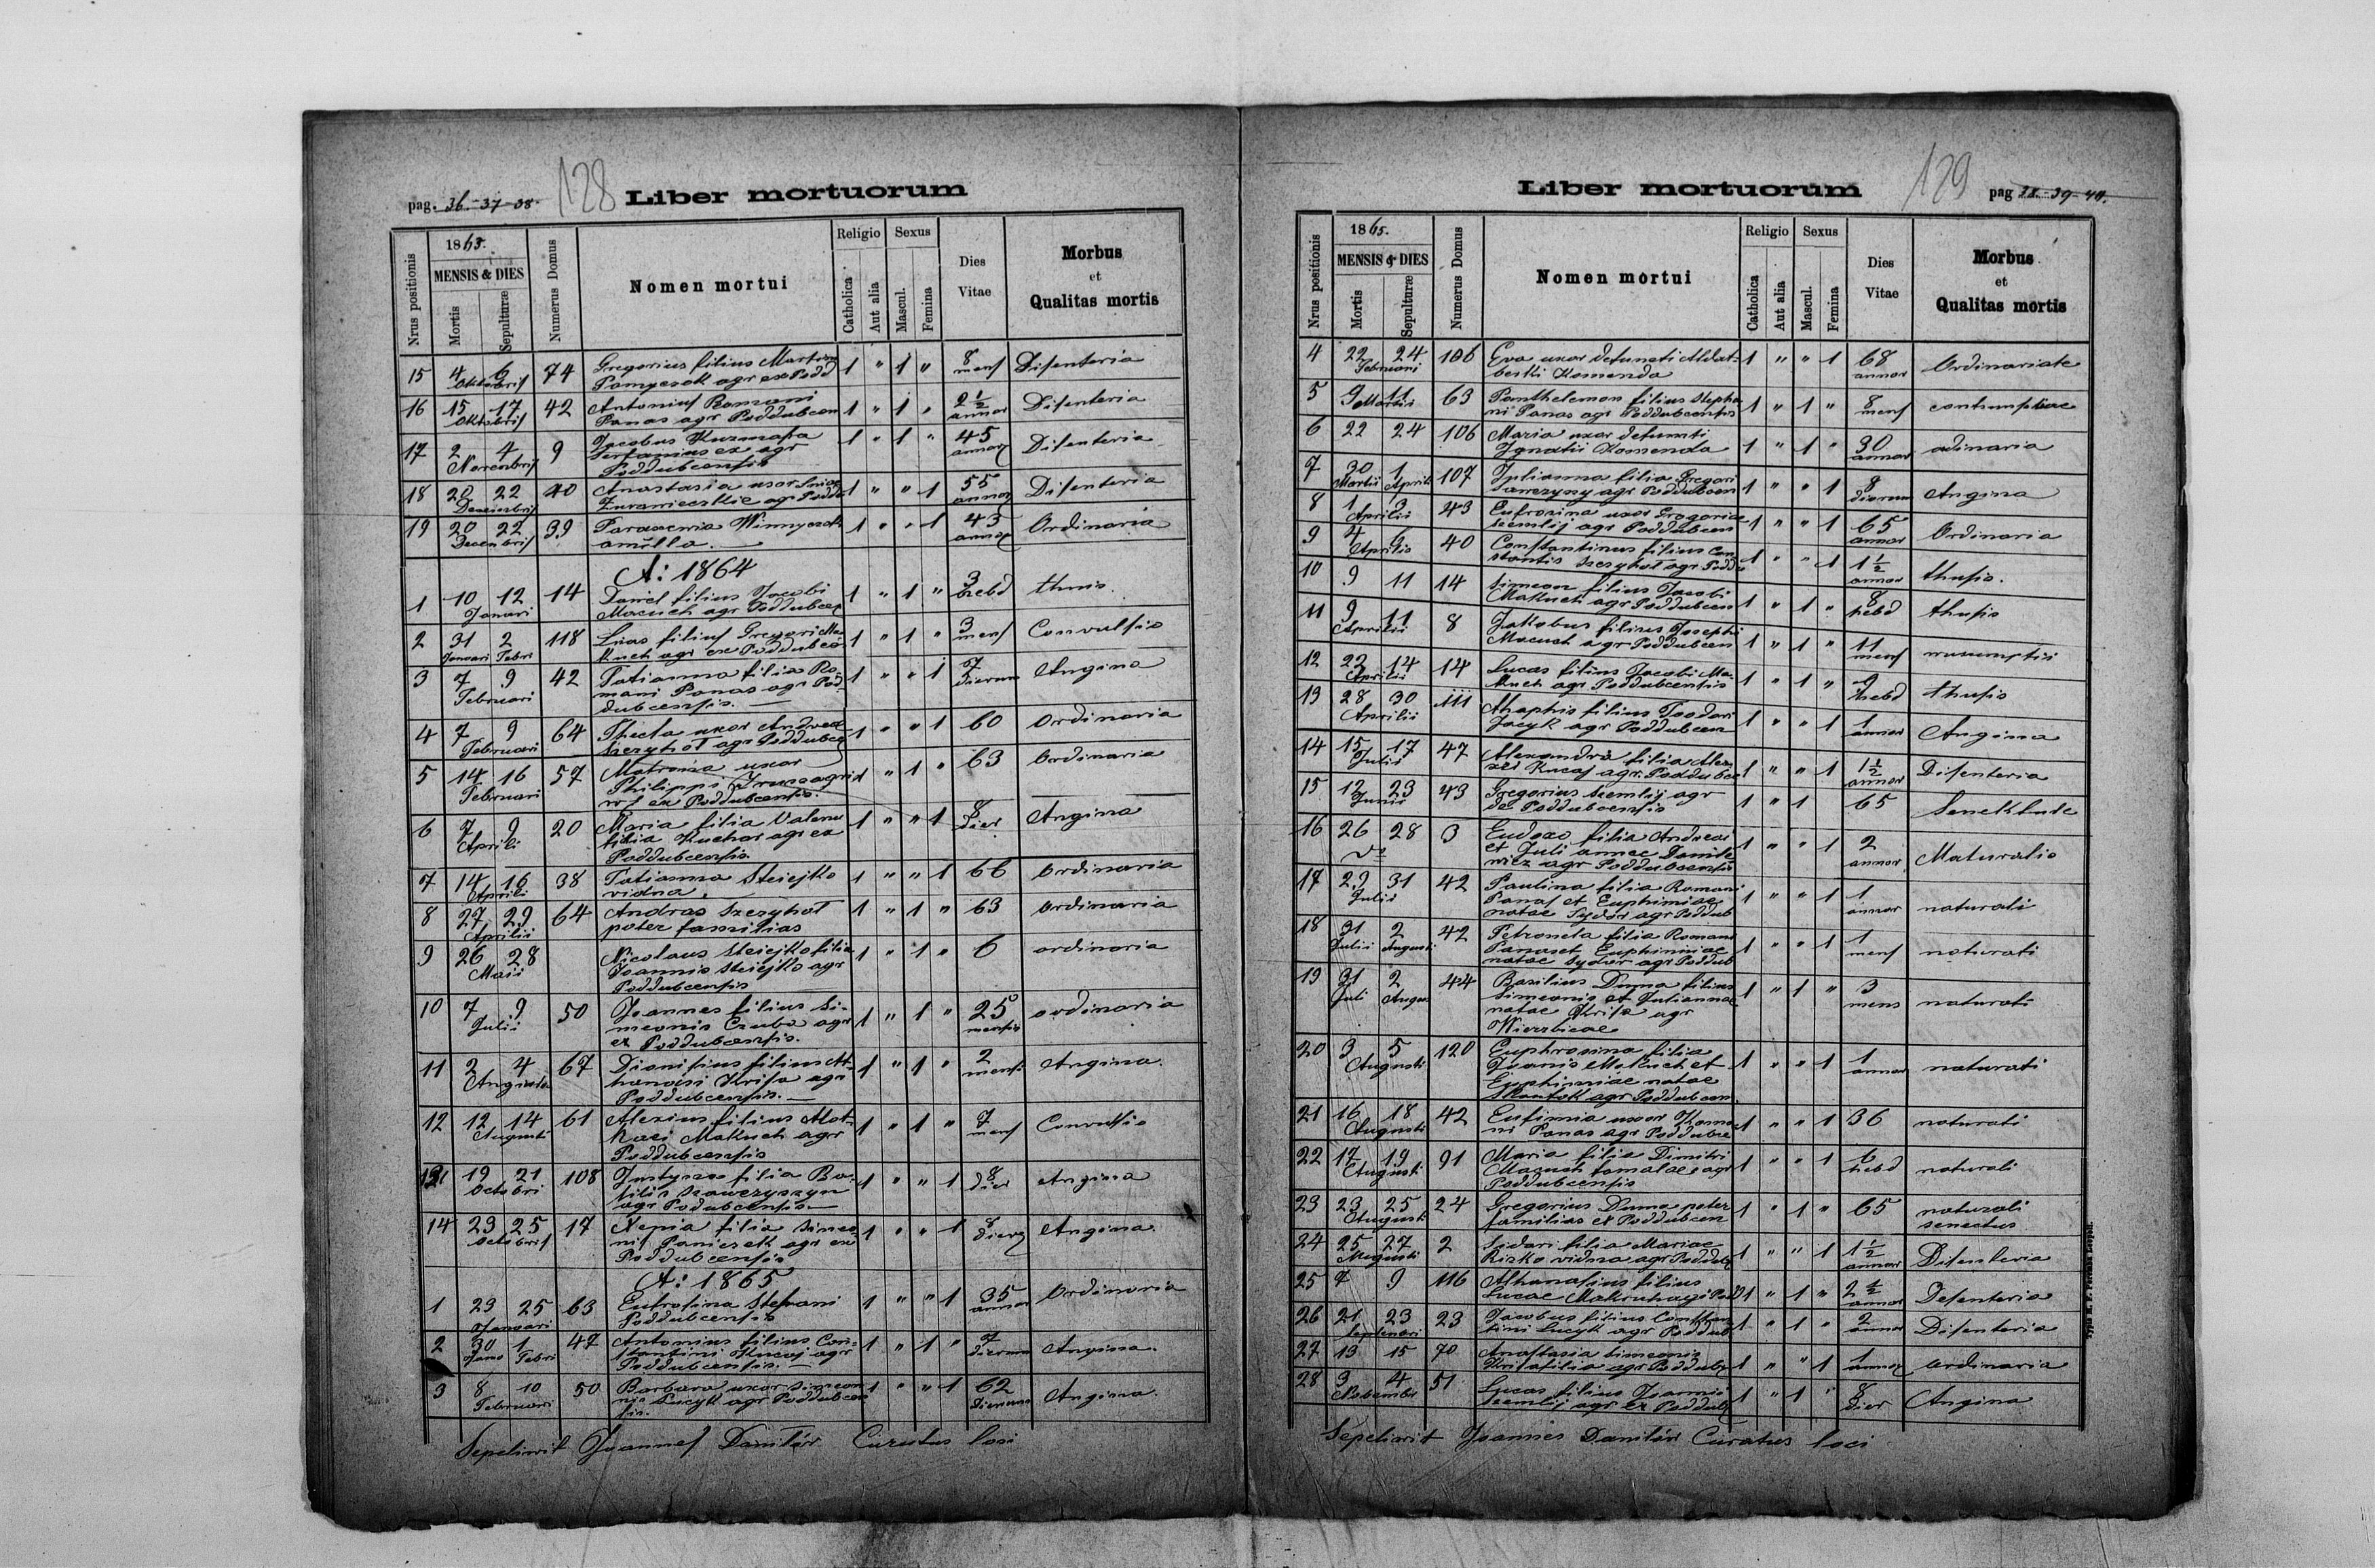 128
pag. 36-37-38.
Liber mortuorum
Nrus positionis
1863.
MENSIS & DIES
Mortis
Sepulturæ
Numerus Domus
Nomen mortui
Religio
Catholica
Aut alia
Sexus
Mascul.
Femina
Dies
Vitae
Morbus
et
Qualitas mortis
15 4 6 74 Gregorius filius 1 " 1 " 8 Disenteria
Oktobris agr ex Podd mens
16 15 17 42 Antonius Romani 1 " 1 " 2 1/2 Disenteria
Oktobris Panas agr Poddubcen annor
17 2 4 9 Jacobus 1 " 1 " 45 Disenteria
Novembris ex agr annor
Poddubcensis
18 20 22 40 Anastasia uxor 1 " " 1 55 Disenteria
Decembris agr annor
19 20 22 39 Paraxenia Winnyczok 1 " " 1 43 Ordinaria
Decembris annor
A: 1864
1 10 12 14 Daniel filius Jacobi 1 " 1 " 3
Januari Macuch agr Poddubcen hebd
2 31 2 118 Lucas filius Gregori Ma- 1 " 1 " 3 Convulsio
Januari Febri kuch agr ex Poddubcen mens
3 7 9 42 Tatianna filia Ro- 1 " " 1 7 Angina
Februari mani Panas agr Pod- dierum
dubcensis.
4 7 9 64 Thecla uxor Andreae 1 " " 1 60 Ordinaria
Februari Szeryhot agr Poddubce
5 14 16 57 Matrona uxor 1 " 1 " 63 Ordinaria
Februari Philippi
ex Poddubcensis.
6 7 9 20 Maria filia Valen- 1 " " 1 8 Angina
Aprili Kuchar agr ex dier
Poddubcensis
7 14 16 38 Tatianna Steiejko 1 " " 1 66 Ordinaria
Aprili vidua
8 27 29 64 Andras Szeryhot 1 " 1 " 63 Ordinaria
Aprilii pater familias
9 26 28 Nicolaus Steiejko filia 1 " 1 " 6 ordinaria
Maii Joannis Steiejko agr
Poddubcensis
10 7 9 50 Joannes filius Si- 1 " 1 " 25 ordinaria
Julii meonis Czuba agr mensis
ex Poddubcensis.
11 2 4 67 Dionisius filius At- 1 " 1 " 2 Angina.
hanasi Krisa agr mens
Poddubcensis.
12 12 14 61 Alexius filius Mat- 1 " 1 " 7 Convulsio
Augusti Makuch agr mens
Poddubcensis
19 21 108 filia Ba- 1 " " 1 8 Angina
Octobri silii Szawczyszyn dier
agr Poddubcensis
14 23 25 17 Xenia filia Simeo- 1 " " 1 8 Angina.
Octobris nis agr ex
Poddubcensis
A: 1865
1 23 25 63 Eufrosina Stefani 1 " " 1 35 Ordinaria
Januari Poddubcensis annor
2 30 1 47 Antonius filius Con- 1 " 1 " 7 Angina.
Febri stantini Kucaj agr dierum
Poddubcensis.
3 8 10 50 Barbara uxor Simeo- 1 " " 1 62 Angina.
Februari nis Lucyk agr Poddubcen
sis.
Sepelivit Joannes Danilów Curatus loci
129
Liber mortuorum
pag 38-39-40.
Nrus positionis
1865.
MENSIS & DIES
Mortis
Sepulturæ
Numerus Domus
Nomen mortui
Religio
Catholica
Aut alia
Sexus
Mascul.
Femina
Dies
Vitae
Morbus
et
Qualitas mortis
4 22 24 106 Eva uxor defuncti 1 " " 1 68 Ordinariate
Februari Komenda annor
5 9 11 63 Panthelemon filius Stepha- 1 " 1 " 8
Martii ni Panas agr Poddubcensis mens
6 22 24 106 Maria uxor defuncti 1 " 1 " 30
Ignatii Komenda annor
7 30 1 107 Julianna filia Gregori 1 " " 1 8 Angina
Martii Aprili agr Poddubcen dierum
8 1 3 43 Eufrosina uxor Gregorii 1 " " 1 65 Ordinaria
Aprilii Szemlij agr Poddubcen annor
9 4 6 40 Constantinus filius Con- 1 " " 1 1 1/2 thusis.
Aprilis stantis Szeryhot agr Poddu annor
10 9 11 14 Simeon filius Jacobi 1 " 1 " 8 thusis
Makuch agr Poddubcen hebd
11 9 11 8 Jakobus filius Josephi 1 " 1 " 11
Aprilii Macuch agr Poddubcen mens
12 22 14 14 Lucas filius Jacobi Ma- 1 " 1 " 9 thusis
Aprilii kuch agr Poddubcensis hebd
13 28 30 111 filius Teodori 1 " " 1 1 Angina
Aprilii Jacyk agr Poddubcen annor
14 15 17 47 Alexandra filia Ale- 1 " " 1 1 1/2 Disenteria
Julii xei Kucaj agr. Poddubce annor
15 12 23 43 Gregorius Szemlij agr 1 " 1 65
Junii de Poddubcensis
16 26 28 3 Eudoxo filia Andreas 1 " " 1 2 Maturalis
et Juli annae Danile- annor
wicz agr Poddubcensis
17 29 31 42 Paulina filia Romani 1 " " 1 1 naturali
Julii Panas et Euphimiae annor
natae Sydor agr Poddub
18 31 2 42 Petronela filia Romani 1 " " 1 1 naturali
Julii Augusti Panas et Euphimiae mens
natae Sydor agr Poddub
19 31 2 44 Basilius Duma filius 1 " 1 " 3 naturali
Juli Augus Simeonis et Juliannae mens
natae Krisa agr
Wierzbicae
20 3 5 120 Euphrosina filia 1 " " 1 1 naturali
Augusti Joanis Makuch et annor
Euphimiae natae
agr Poddubcen.
21 16 18 42 Eufimia uxor Roma- 1 " " 1 36 naturali
Augusti ni Panas agr Poddubce
22 17 19 91 Maria filia Dimitri 1 " " 1 6 naturali
Augusti Macuch agr hebd
Poddubcensis
23 23 25 24 Gregorius Duma pater 1 " 1 " 65 naturali
Augusti familias ex Poddubcen senectus
24 25 27 2 filia Mariae 1 " " 1 1 1/2 Disenteria
Augusti Risko vidua agr Poddub annor
25 7 9 116 Athanasius filius 1 " 1 " 2 1/2 Desenteria
Lucae annor
26 21 23 23 Jacobus filius Constan- 1 " 1 " 2 Disenteria
tini Lucyk agr Poddub annor
27 13 15 70 Anastasia Simeonis 1 " " 1 1 Ordinaria
Krisa filia agr Poddub annor
28 3 4 51 Lucas filius Joannis 1 " 1 " 8 Angina
Szemlij agr ex Poddub dier
Sepelivit Joannes Danilów Curatus loci